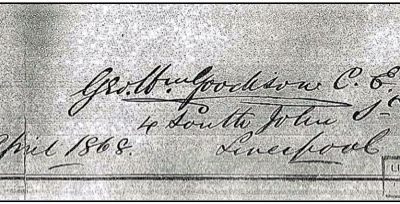 Geo. Wm Goodison C. E.
4 South John St
April 1868. Liverpool